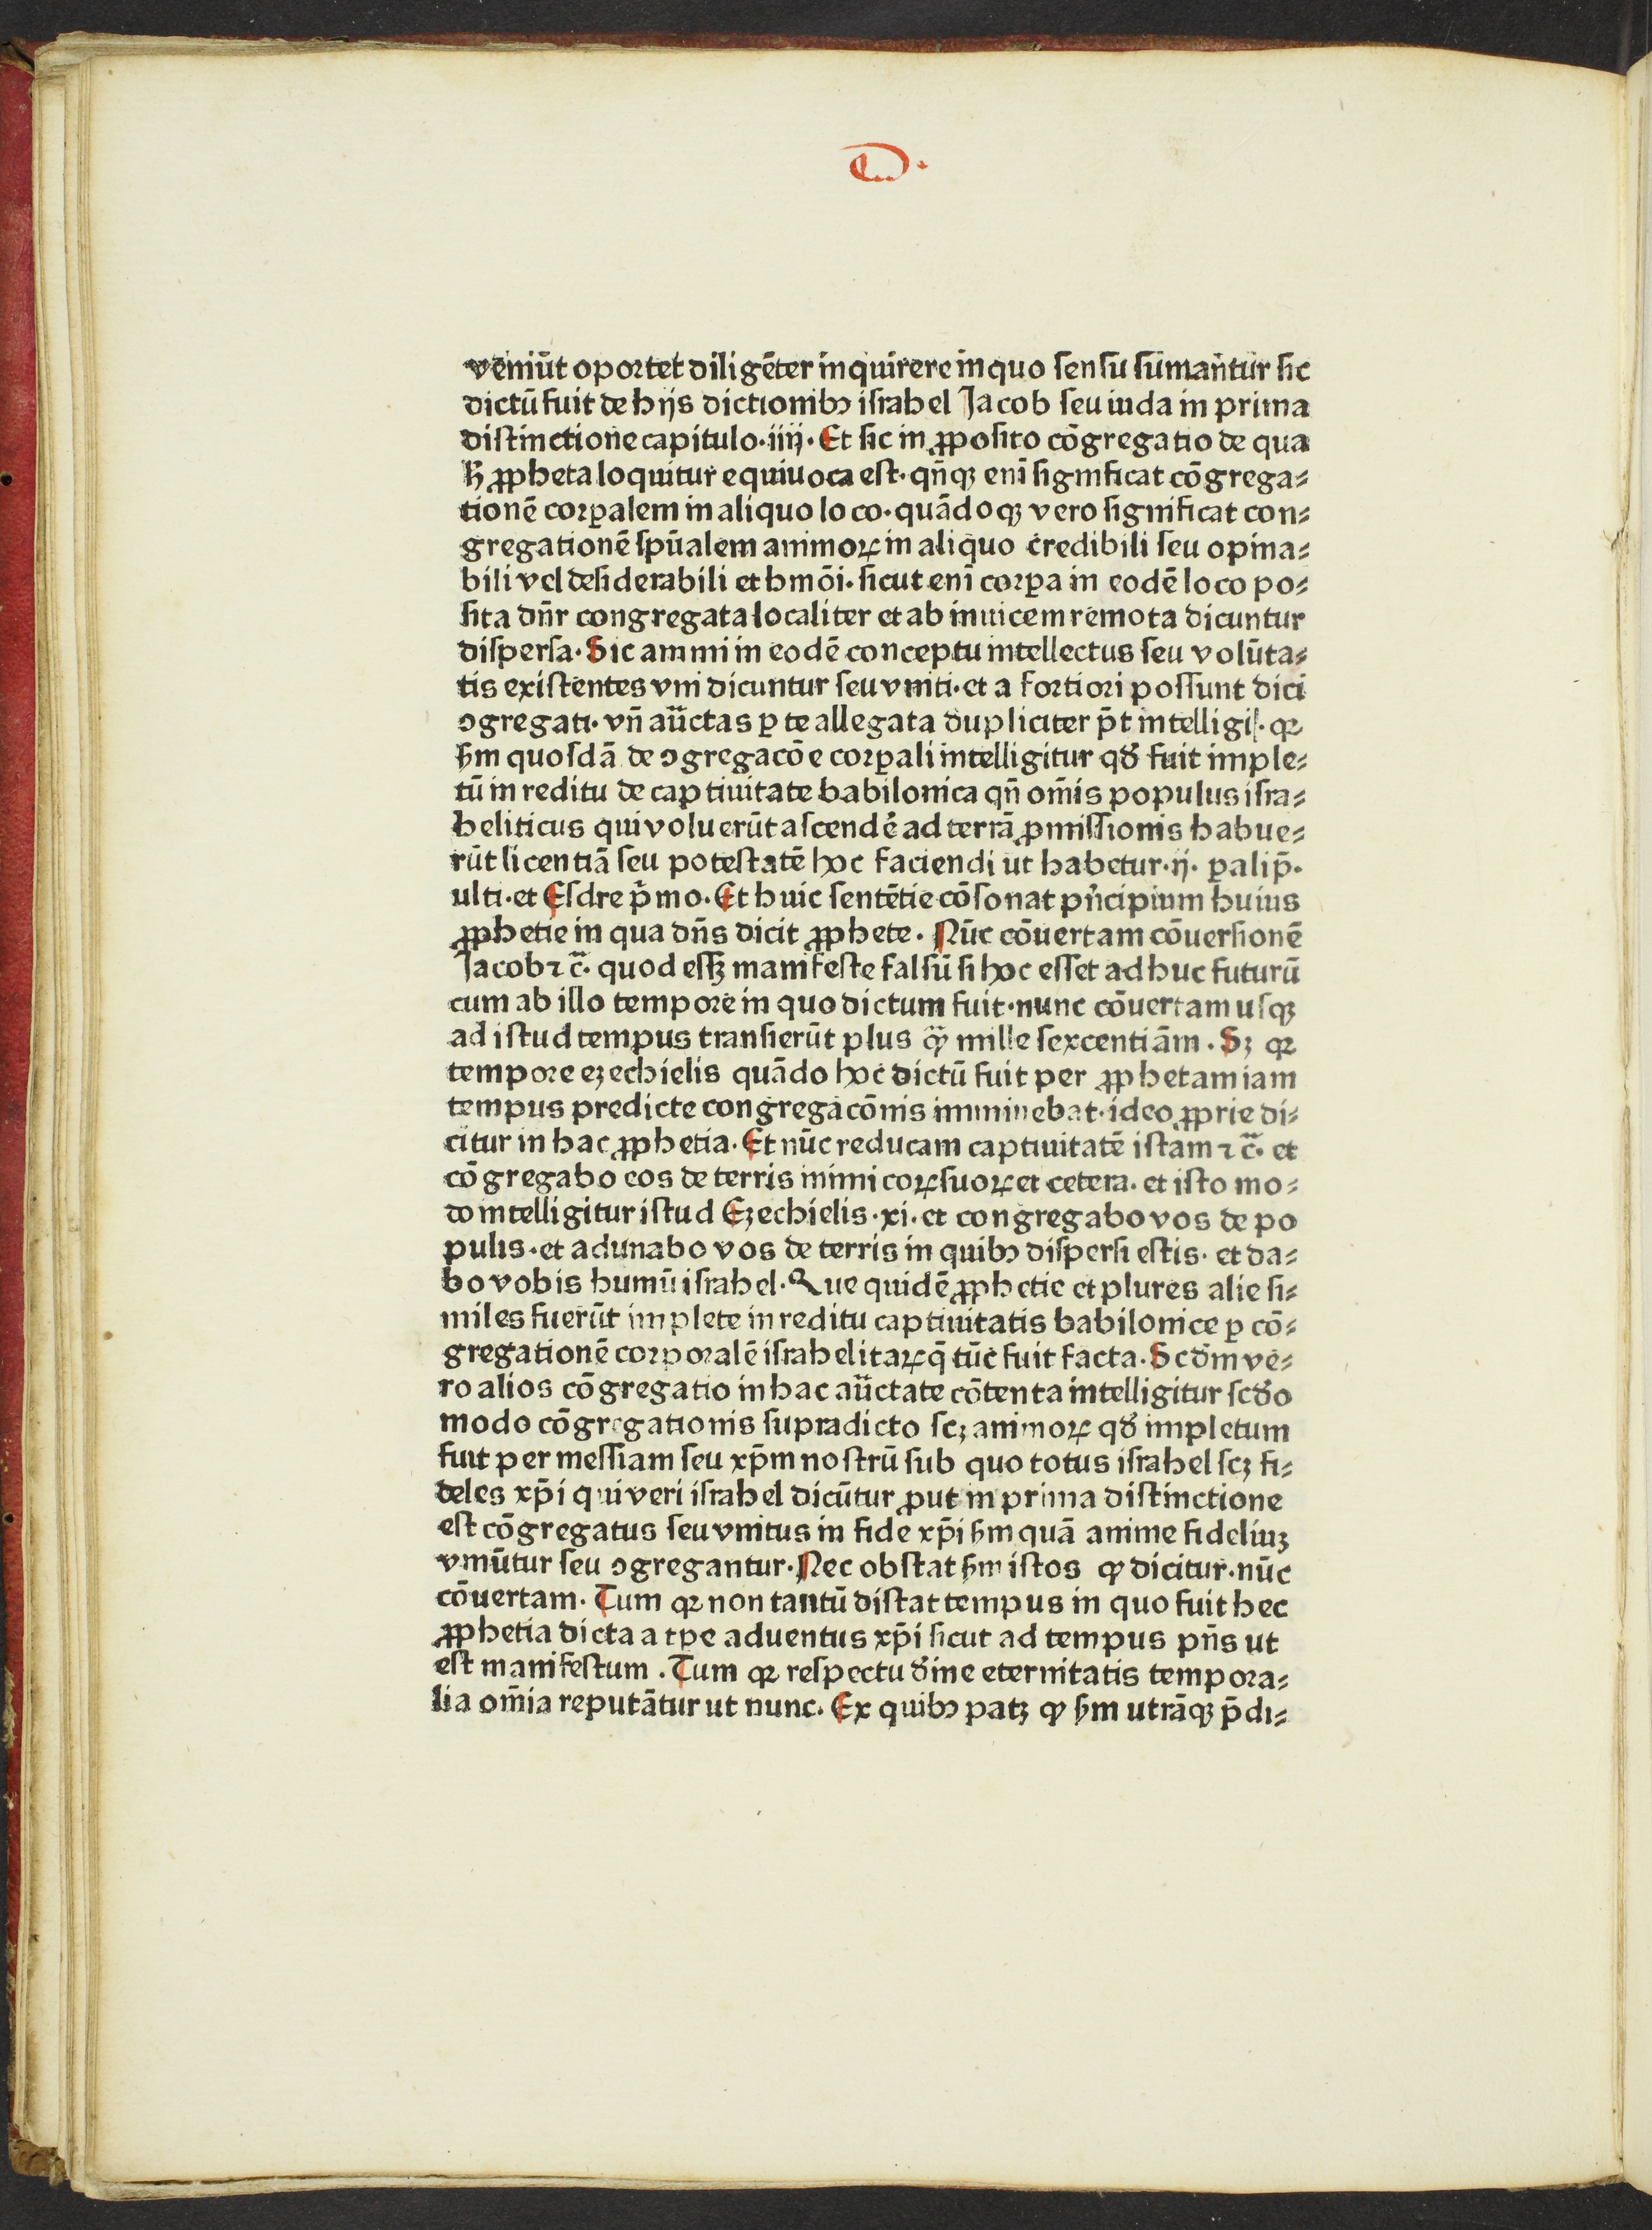 D.
veniūt oportet diligēter inquirere in quo sensu sumantur sic
dictū fuit de hijs dictionibꝫ israhel Jacob seu iuda in prima
distinctione capitulo·iiij· Et sic in ꝓposito cōgregatio de qua
ꝓpheta loquitur equiuoca est· qn̄qꝫ enī significat cōgrega⸗
tionē corꝑalem in aliquo loco· quādoqꝫ vero significat con⸗
gregationē spūalem animoꝝ in aliquo credibili seu opina⸗
bili vel desiderabili et hmōi· sicut enī corꝑa in eodē loco po⸗
sita dn̄r congregata localiter et ab inuicem remota dicuntur
dispersa· Sic animi in eodē conceptu intellectus seu volūta⸗
tis existentes vni dicuntur seu vniti· et a fortiori possunt dici
ꝯgregati· vn̄ aūctas ꝑ te allegata dupliciter p̄t intelligi· qꝛ
ẜm quosdā de ꝯgregacōe corꝑali intelligitur qđ fuit imple⸗
tū in reditu de captiuitate babilonica qn̄ om̄is populus isra⸗
heliticus qui voluerūt ascendē ad terrā ꝓmissionis habue⸗
rūt licentiā seu potestatē hoc faciendi ut habetur·ij· ꝑalip̄·
ulti· et Esdre p̄mo· Et huic sentētie cōsonat pn̄cipium huius
ꝓphetie in qua dn̄s dicit ꝓphete· Nūc cōuertam cōuersionē
Jacob ⁊ c̄· quod essꝫ manifeste falsū si hoc esset adhuc futurū
cum ab illo tempore in quo dictum fuit· nunc cōuertam usqꝫ
ad istud tempus transierūt plus qꝫ mille sexcenti ām· Sꝫ qꝛ
tempore ezechielis quādo hoc dictū fuit per ꝓphetam iam
tempus predicte congregacōnis imminebat· ideo ꝓprie di⸗
citur in hac ꝓphetia· Et nūc reducam captiuitatē istam ⁊ c̄· et
cōgregabo eos de terris inimicoꝝ suoꝝ et cetera· et isto mo⸗
do intelligitur istud Ezechielis·xi· et congregabo vos de po
pulis· et adunabo vos de terris in quibꝫ dispersi estis· et da⸗
bo vobis humū israhel· Que quidē ꝓphetie et plures alie si⸗
miles fuerūt implete in reditu captiuitatis babilonice ꝑ cō⸗
gregationē corporalē israhelitaꝝ q̄ tūc fuit facta· Scđm ve⸗
ro alios cōgregatio in hac aūctate cōtenta intelligitur scđo
modo cōgregationis supradicto scꝫ animoꝝ qđ impletum
fuit per messiam seu xp̄m nostrū sub quo totus israhel scꝫ fi⸗
deles xp̄i qui veri israhel dicūtur ꝓut in prima distinctione
est cōgregatus seu vnitus in fide xp̄i ẜm quā anime fideliuꝫ
vniūtur seu ꝯgregantur· Nec obstat ẜm istos ꝙ dicitur· nūc
cōuertam· Tum qꝛ non tantū distat tempus in quo fuit hec
ꝓphetia dicta a tpe aduentus xp̄i sicut ad tempus pn̄s ut
est manifestum· Tum qꝛ respectu đine eternitatis tempora⸗
lia om̄ia reputātur ut nunc· Ex quibꝫ patꝫ ꝙ ẜm utrāqꝫ p̄di⸗